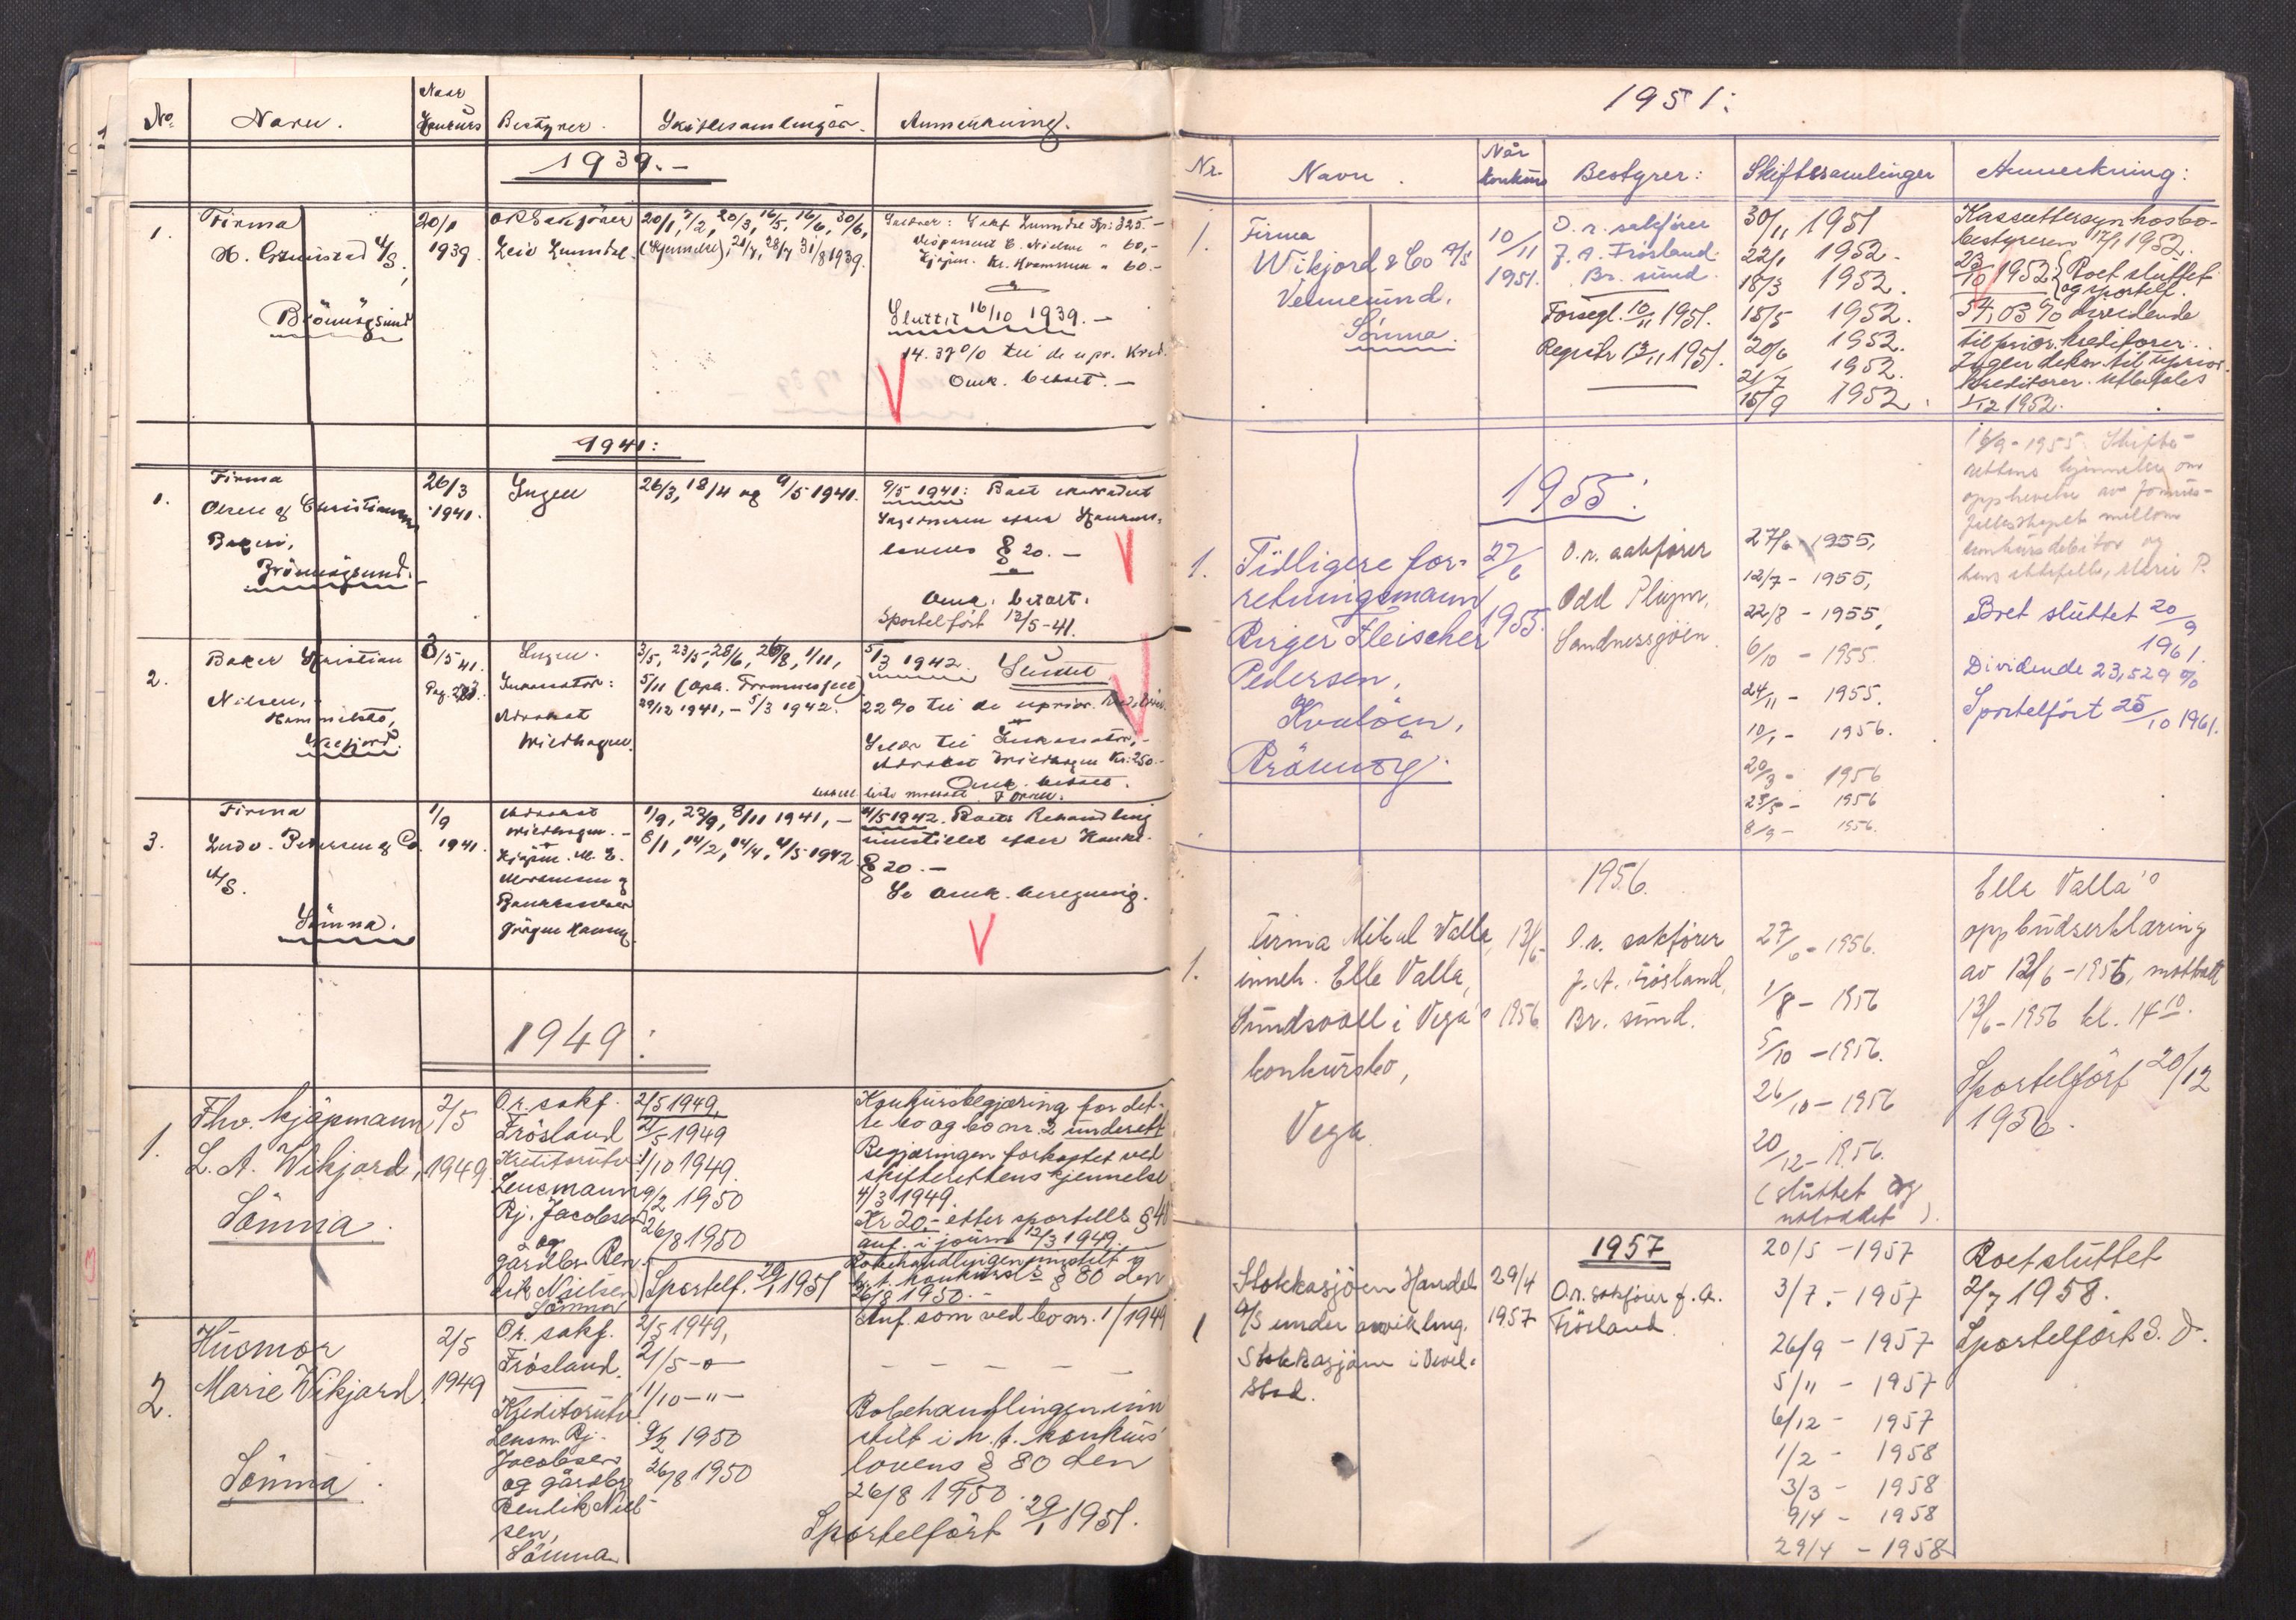 No. Navn. Naar Konkurs Bestyrer. Skiftesamlinger. Anmerkning.
1939.-
1. Firma
A/S,
Brönnøysund
20/1
1939.
ORSakförer
Leiv Lundal.
20/1, 7/2, 20/3, 16/5, 16/6, 30/6,
31/8 1939.
60,-
60.-
Sluttet 16/10 1939.-
14.37% til de upr. Kred.
Omk. betalt.-
1941:
1. Firma
Olsen & Christiansen
Bakeri,
Brönnøysund.
26/3
1941.
Ingen
26/3, 18/4 og 9/5 1941.
9/5 1941: Boet
§ 20.-
Omk. betalt.
Sportelført 12/5-41.
2. Baker Kristian
Nilsen,
Velfjord.
3/5 41.
Ingen.
Inkassator:
Advokat
Wiedhagen.
3/5, 23/5, 28/6, 26/8, 1/11,
5/11
29/12 1941, - 5/3 1942.
5/3 1942. Sluttet
22% til de uprior.
Salær til Inkassator,-
Advokat Wiedhagen Kr. 250.-
Omk. betalt.
3. Firma
Ludv. Pedersen & Co.
A/S.
Sömna.
1/9
1941.
Advokat
Wiedhagen.-
Jörgen Hansen
1/9, 22/9, 8/11 1941,-
6/1, 14/2, 14/4, 4/5 1942
4/5 1942. Boets Behandling
innstillet efter Konkl.
§ 20.-
Se omk. beregning.
1949:
1. Fhv. kjöpmann
L. A. Wikjord,
Sömna.
2/5
1949
O.r. sakf.
Frösland
Kreditorutv:
Lensmann
Bj. Jacobsen
og
gårdbr. Ben-
dik Nielsen
Sömna
2/5 1949,
21/5 1949
1/10 1949.
9/2 1950
26/8 1950
Sportelf. 29/1 1951
Konkursbegjæring for det-
te bo og bo nr. 2 underett
Begjæringen forkastet ved
skifterettens kjennelse
4/3 1949.
Kr 20.- etter sportell. § 40
anf. i journ 12/3 1949.
Bobehandlingen innstilt
h.t. konkursl.s § 80 den
26/8 1950.-
2. Husmor
Marie Wikjord,
Sömna.
2/5
1949
O.r. sakf.
Frösland.
Kreditorutv
Lensm. Bj.
Jacobsen
og gårdbr
Bendik Niel-
sen,
Sömna
2/5 1949,
21/5 -o-
1/10 -"-
9/2 1950
26/8 1950
Anf. som ved bo nr. 1/1949
Bobehandlingen inn
stilt i h.t. konkurs
lovens § 80 den
26/8 1950.
Sportelfört 29/1 1951.
1951:
Nr. Navn. Når konkurs Bestyrer: Skiftessamlinger Anmerkning:
1. Firma
Wikjord & Co A/S
Vennesund.
Sömna.
10/11
1951.
O.r. sakförer
J. A. Frösland.
Br. sund.
Forsegl. 10/11 1951.
Registr 13/11 1951.
30/11 1951
22/1 1952.
18/3 1952.
15/5 1952.
20/6 1952.
21/7 1952.
15/9 1952.
Kasseettersyn hos bo-
bestyreren 17/1 1952.
23/10 1952 { Boet sluttet
og sportelf.
54,03 % dividende
til prior. kreditorer.
Ingen dekn. til uprior.
kreditorer. Utbetales
1/12 1952.
1955:
1. Tidligere for-
retningsmann
Birger Fleischer
Pedersen,
Kvalöen,
Brönnöy.
27/6
1955.
O.r. sakförer
Odd Plujm,
Sandnessjöen.
27/6 1955,
12/7 - 1955,
22/8 - 1955,
6/10 - 1955.
24/11 - 1955.
10/1 - 1956.
20/3 - 1956
1956
8/9 - 1956.
16/9-1955. Skifte-
rettens kjennelse om
opphevelse av formues-
fellesskapet mellom
konkursdebitor og
hans ektefelle, Marie P.
Boet sluttet 20/9
1961.
Dividende 23,529 %
Sportelfört 25/10 1961.
1956.
1. Firma Mikal Valla,
inneh. Elle Valla,
Sundsvoll i Vega's
konkursbo,
Vega
13/6-
1956
O.r. sakförer
J. A. Frösland,
Br. sund.
27/6 - 1956.
1/8 - 1956
5/10 - 1956.
26/10 - 1956
20/12 - 1956.
(sluttet og
utloddet).
Ella Valla's
oppbudserklæring
av 12/6-1956, mottatt
13/6-1956 kl. 14 10.
Sportelfört 20/12
1956.
1957
1 Stokkasjöen Handel
A/S under avvikling.
Stokkasjöen i Vevel-
stad.
29/4
1957
O.r. sakförer J. A.
Frösland
20/5 - 1957
3/7.- 1957
26/9 - 1957
5/11 - 1957
6/12 - 1957
1/2 - 1958
3/3 - 1958
9/4 - 1958
29/4 - 1958
Boet sluttet
2/7 1958.
Sportelfört S. D.